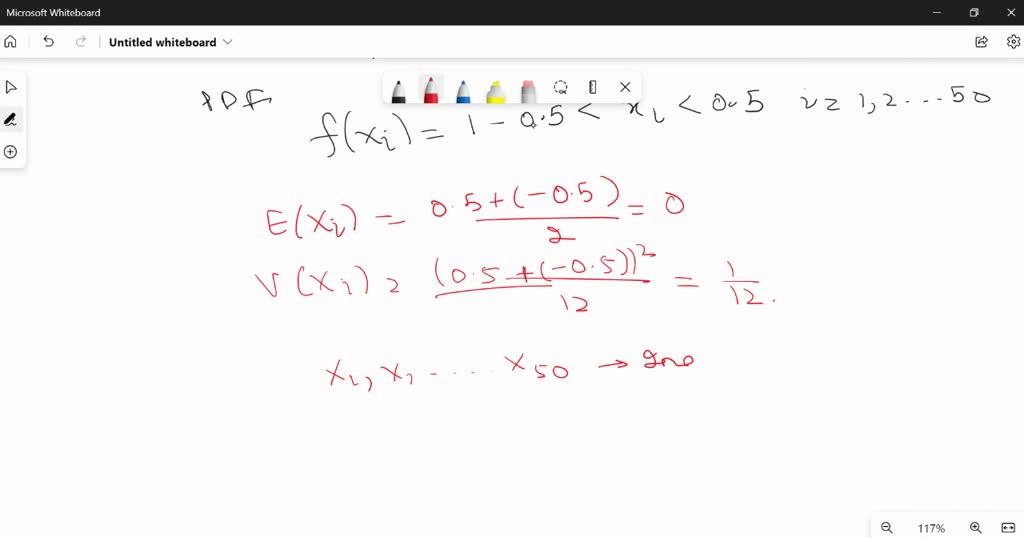 Microsoft Whiteboard
Untitled whiteboard
PDF
f(xi) = 1 - 0.5 < xi < 0.5 i = 1, 2 ... 50
E(Xi) = 0.5 + (-0.5) / 2 = 0
V(Xi) = (0.5 + (-0.5))² / 12 = 1/12.
Xi, X, ..... X50 →
117%